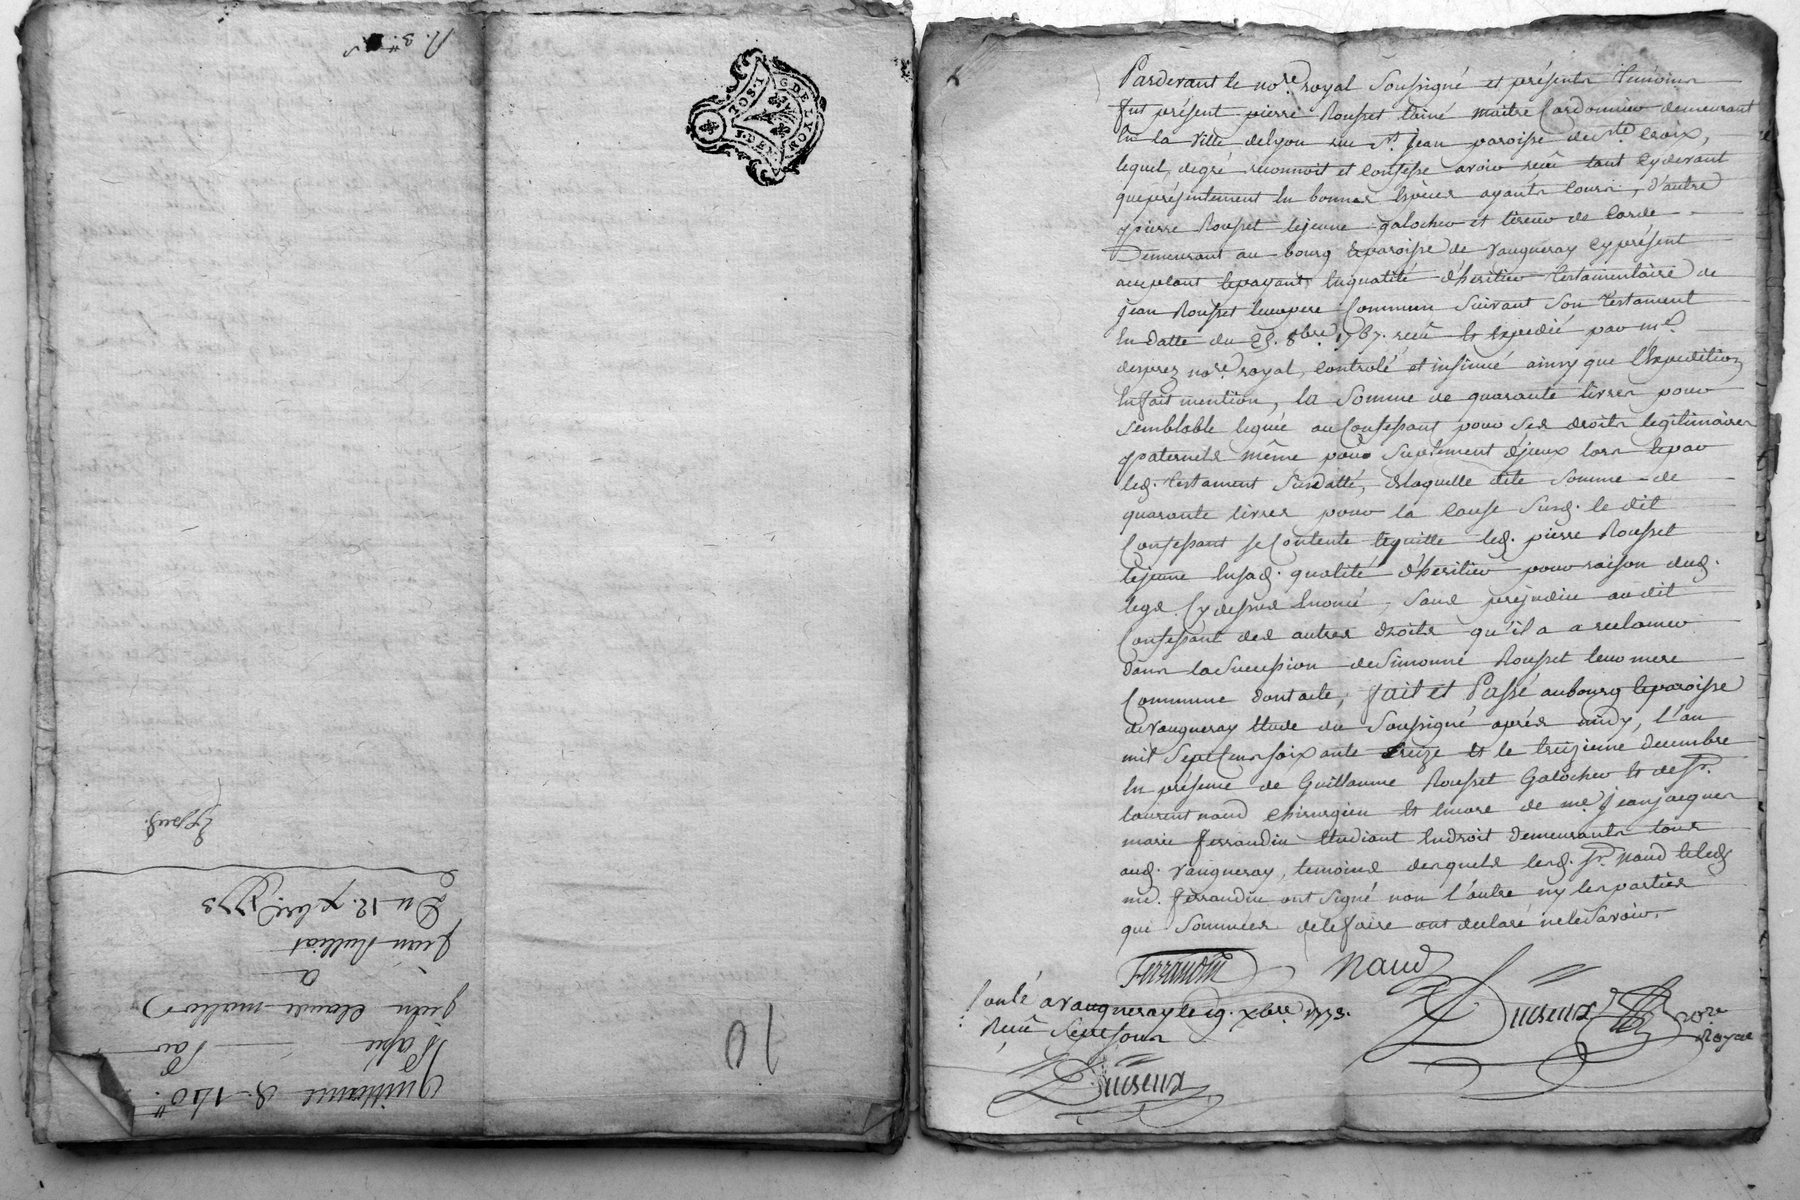 R. 3.
G. DE LYON
Quittance de 140.#
Passée Par
Jean Claude
a
Jean Rulliat
Du 12. xbre 1773
Exped.
10
Pardevant le nore. royal Soussigné et présents témoins
fut présent pierre Rousset l'ainé maitre Cordonnier demeurant
En la ville de Lyon rue St. Jean paroisse de Ste. Croix,
lequel, de gré reconnoit et Confesse avoir reçû tant Cy devant
que présentement En bonnes Espèces ayants Cours, d'autre
pierre Rousset le jeune galocher et tireur de Corde
Demeurant au bourg Et paroisse de Vaugneray Cy présent
acceptant Et payant, En qualité d'héritier testamentaire de
Jean Rousset leur pere Commun Suivant Son testament
En datte du 25. 8bre. 1767. reçû Et Expedié par me.
desprez nore. royal, Controlé et insinué ainsy que l'Expedition
En fait mention, la Somme de quarante livres pour
Semblable leguée au Confessant pour Ses droits legitimaires
paternels même pour Suplement d'jceux lors Et par
led. testament Susdatté, de laquelle dite Somme de
quarante livres pour la Cause Susd. le dit
Confessant se Contente Et quitte led. pierre Rousset
le jeune En sad. qualité d'héritier pour raison dud.
legs Cy dessus Enoncé, Sans prejudice audit
Confessant des autres droits qu'il a a reclamer
dans la Succession de Simonne Rousset leur mere
Commune dont acte, fait et Passé au bourg Et paroisse
de Vaugneray Etude du Soussigné après midy, l'an
mil Sept Cens soixante treize Et le treizieme decembre
En présence de Guillaume Rousset Galocher Et de Sr.
laurent naud chirurgien Et Encore de me. Jean jacques
marie ferrandin Etudiant En droit demeurants tous
aud. Vaugneray, temoins desquels lesd. Sr. naud Et led.
me. ferrandin ont Signé non l'autre ny les parties
qui Sommées de le faire ont declaré ne le Savoir.
Ferrandin naud
Duiseux nore. Royal
Conlé a Vaugneray le 19. xbre. 1773.
Reçû
Duiseux